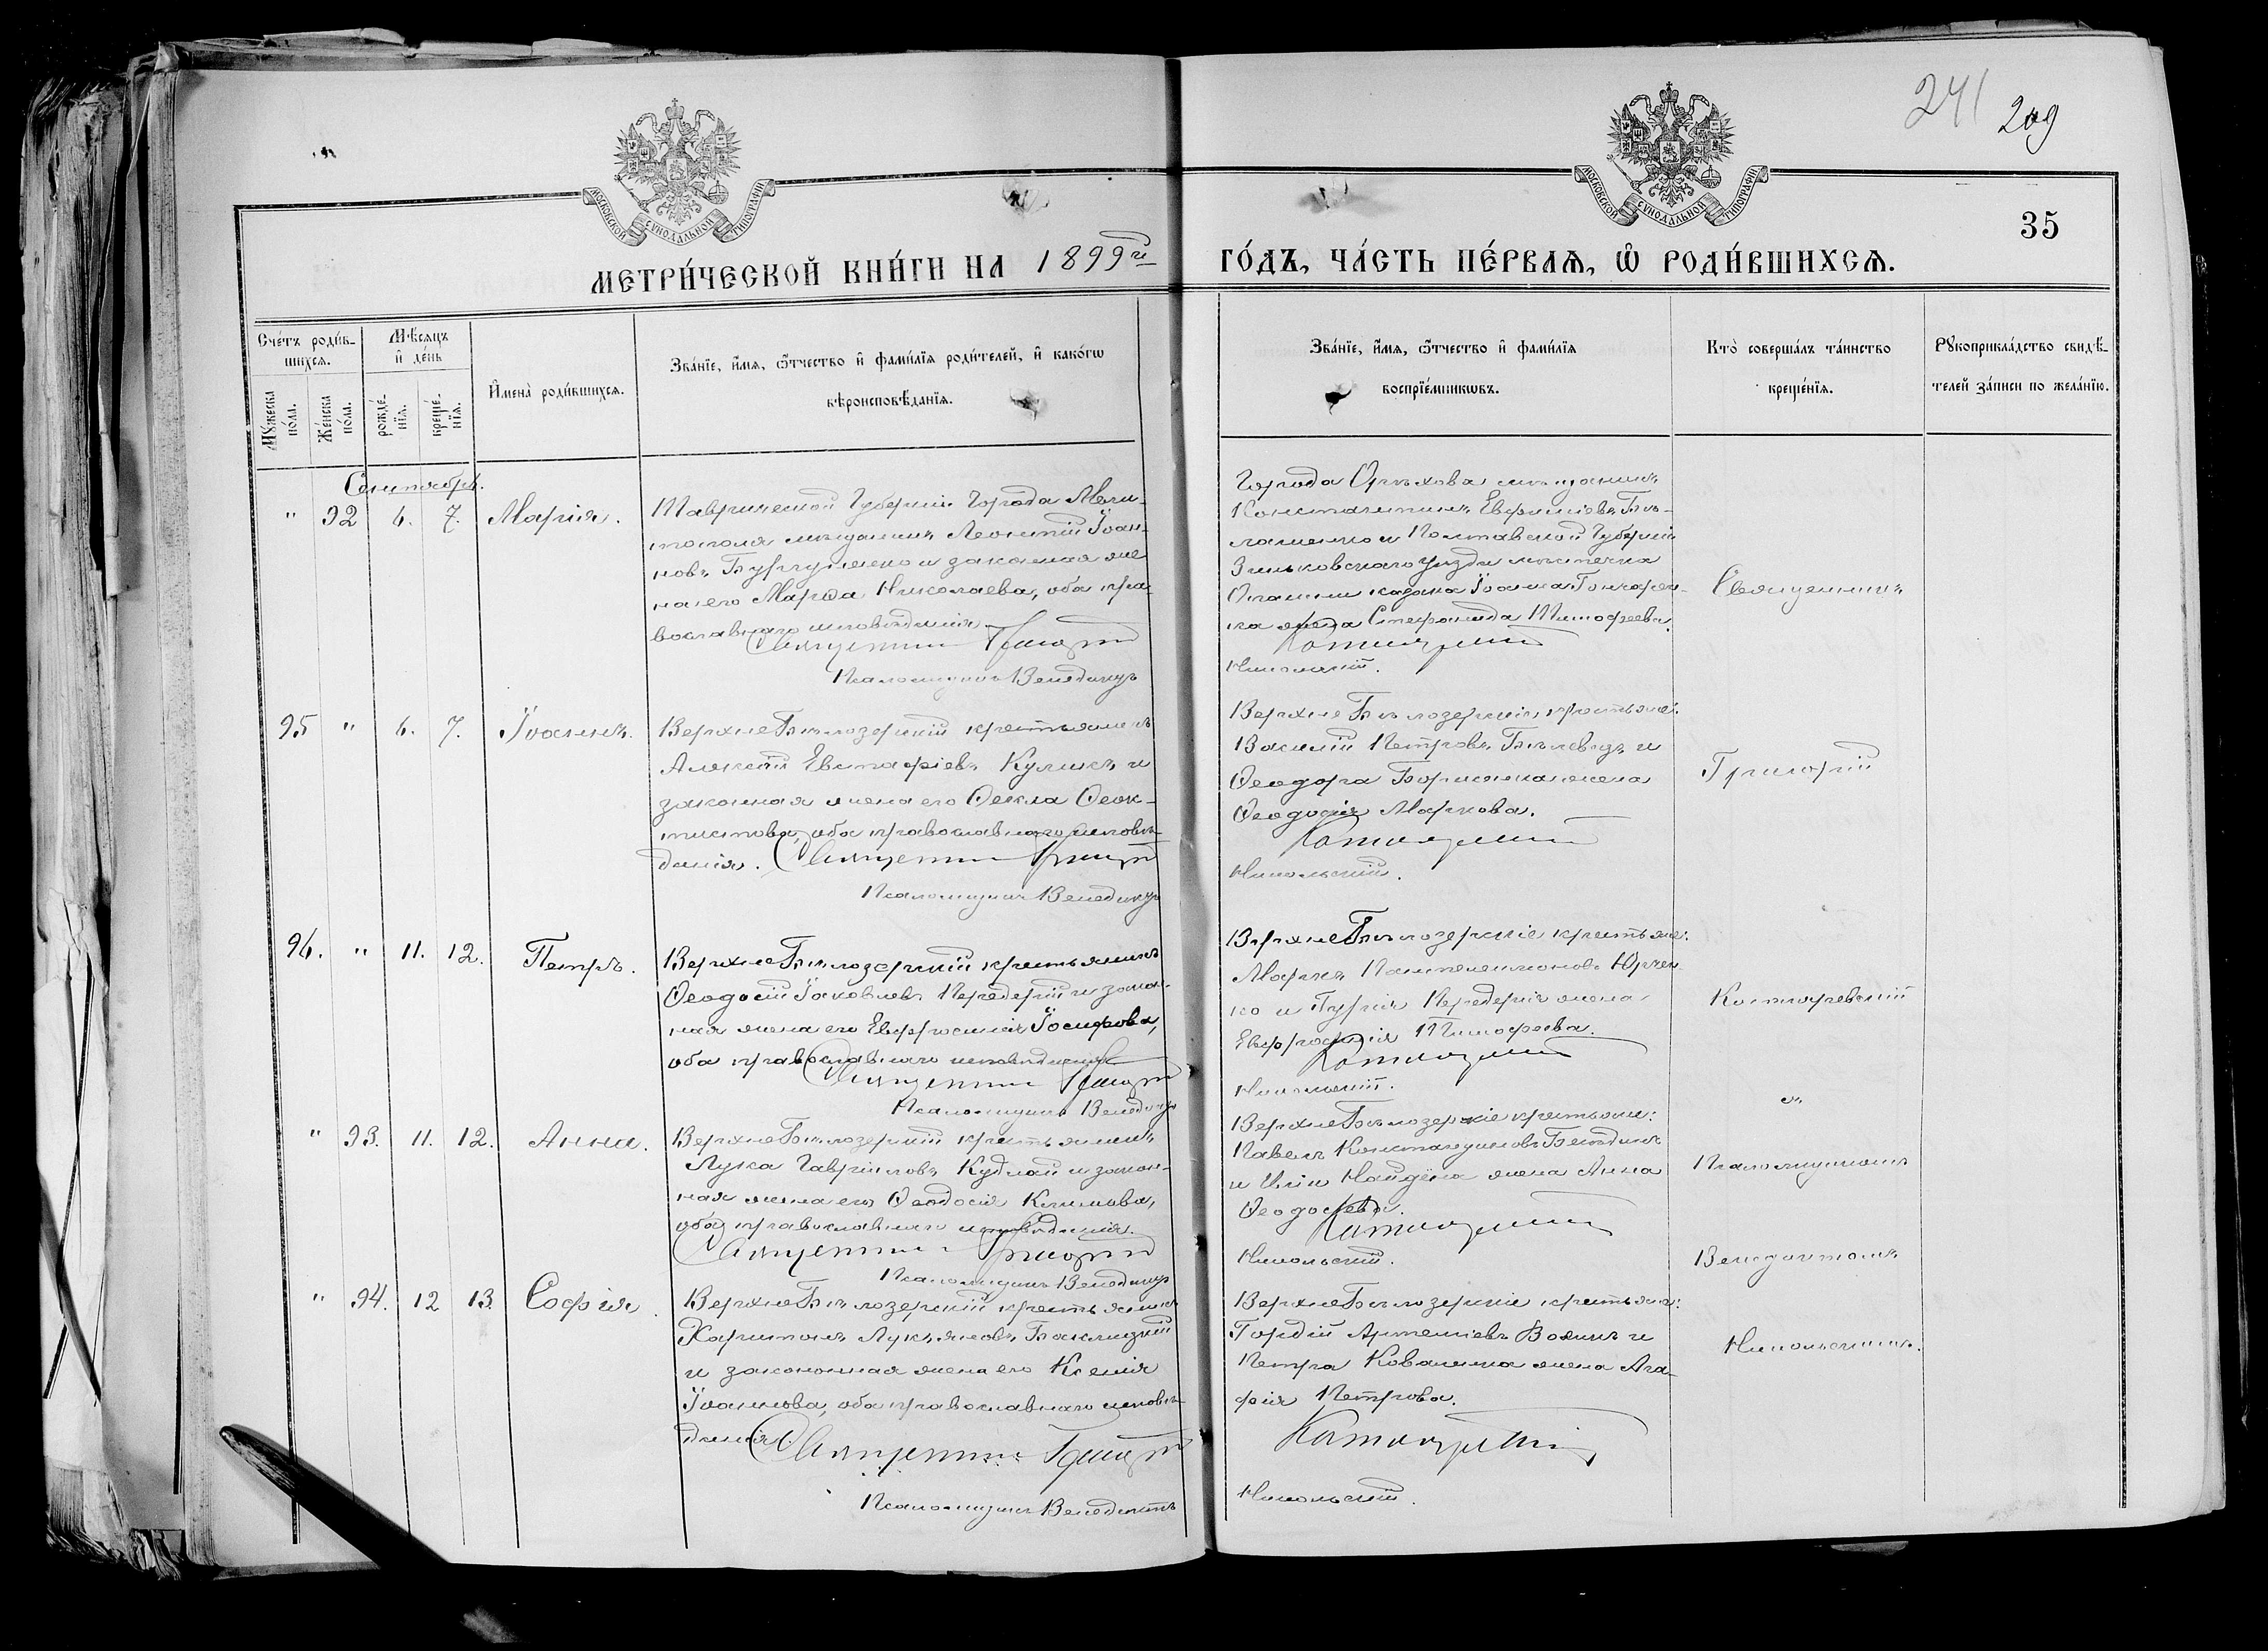 241 209
МОСКОВСКОЙ СѴНОДАЛЬНОЙ ТИПОГРАФІИ
МОСКОВСКОЙ СѴНОДАЛЬНОЙ ТИПОГРАФІИ
35
МЕТРИ́ЧЕСКОЙ КНИ́ГИ НА 1899й ГО́ДЪ, ЧА́СТЬ ПЕ́РВАѦ, Ѡ҆ РОДИ́ВШИХСѦ.
Сче́тъ роди́в-
шихсѧ.
Мꙋ́жеска
по́ла.
Же́нска
по́ла.
Мѣ́сѧцъ
и҆ де́нь
рожде́-
нїѧ.
креще́-
нїѧ.
И҆мена̀ роди́вшихсѧ.
Зва́нїе, и҆́мѧ, ѻ҆́тчество и҆ фами́лїѧ роди́телей, и҆ како́гѡ
вѣроисповѣ́данїѧ.
Зва́нїе, и҆́мѧ, ѻ҆́тчество и҆ фами́лїѧ
воспрїе́мникѡвъ.
Кто̀ соверша́лъ та́инство
креще́нїѧ.
Рꙋкоприкла́дство свидѣ́-
телей за́писи по жела́нїю.
Сентябрь.
" 92 6. 7. Марія.
Таврической Губерніи Города Мели-
тополя мѣщанинъ Леонтій Іоан-
новъ и законная же
на его Марѳа Николаева, оба пра-
вославнаго исповѣданія
Священникъ Григорій
Псаломщикъ Венедиктъ
Города Орѣхова мѣщанинъ
Константинъ
и Полтавской Губерніи
Зиньковскаго уѣзда мѣстечка
казака Іоанна Гончарен-
ка жена Стефанида Тимофеева.
Костюревскій
Никольскій.
95 " 6. 7. Іоаннъ.
ВерхнеБѣлозерскій крестьянинъ
Алексѣй Евстафіевъ Куликъ и
законная жена его Ѳекла Ѳеок-
тистова, оба православнаго исповѣ-
данія. Священникъ Григорій
Псаломщикъ Венедиктъ
ВерхнеБѣлозерскіе крестьяне:
Василій Петровъ и
Ѳеодора жена
Ѳеодосія Маркова.
Костюревскій
Никольскій.
96. " 11. 12. Петръ.
ВерхнеБѣлозерскій крестьянинъ
Ѳеодосій Іаковлевъ Передерій и закон-
ная жена его Евфросинія Іосифова,
оба православнаго исповѣданія
Священникъ Григорій
Псаломщикъ Венедиктъ
ВерхнеБѣлозерскіе крестьяне:
Марко Пантелеимоновъ Юрчен-
ко и Гурія Передерія жена
Евфросинія Тимофеева.
Костюревскій
Никольскій.
" 93. 11. 12. Анна.
ВерхнеБѣлозерскій крестьянинъ
Лука Гавріиловъ Кудлай и закон-
ная жена его Ѳеодосія Климова,
оба православнаго исповѣданія.
Священникъ Григорій
Псаломщикъ Венедиктъ
ВерхнеБѣлозерскіе крестьяне:
Павелъ Константиновъ
и Иліи Найдёна жена Анна
Ѳеодосіева.
Костюревскій
Никольскій.
" 94. 12 13. Софія.
ВерхнеБѣлозерскій крестьянинъ
Харитонъ Лукьяновъ Баклицкій
и законная жена его Ксенія
Іоаннова, оба православнаго исповѣ-
данія. Священникъ Григорій
Псаломщикъ Венедиктъ
ВерхнеБѣлозерскіе крестьяне:
Гордій Артеміевъ и
Петра жена Ага-
фія Петрова.
Костюревскій
Никольскій.
Священникъ
Григорій
Костюревскій
съ
Псаломщикомъ
Венедиктомъ
Никольскимъ.